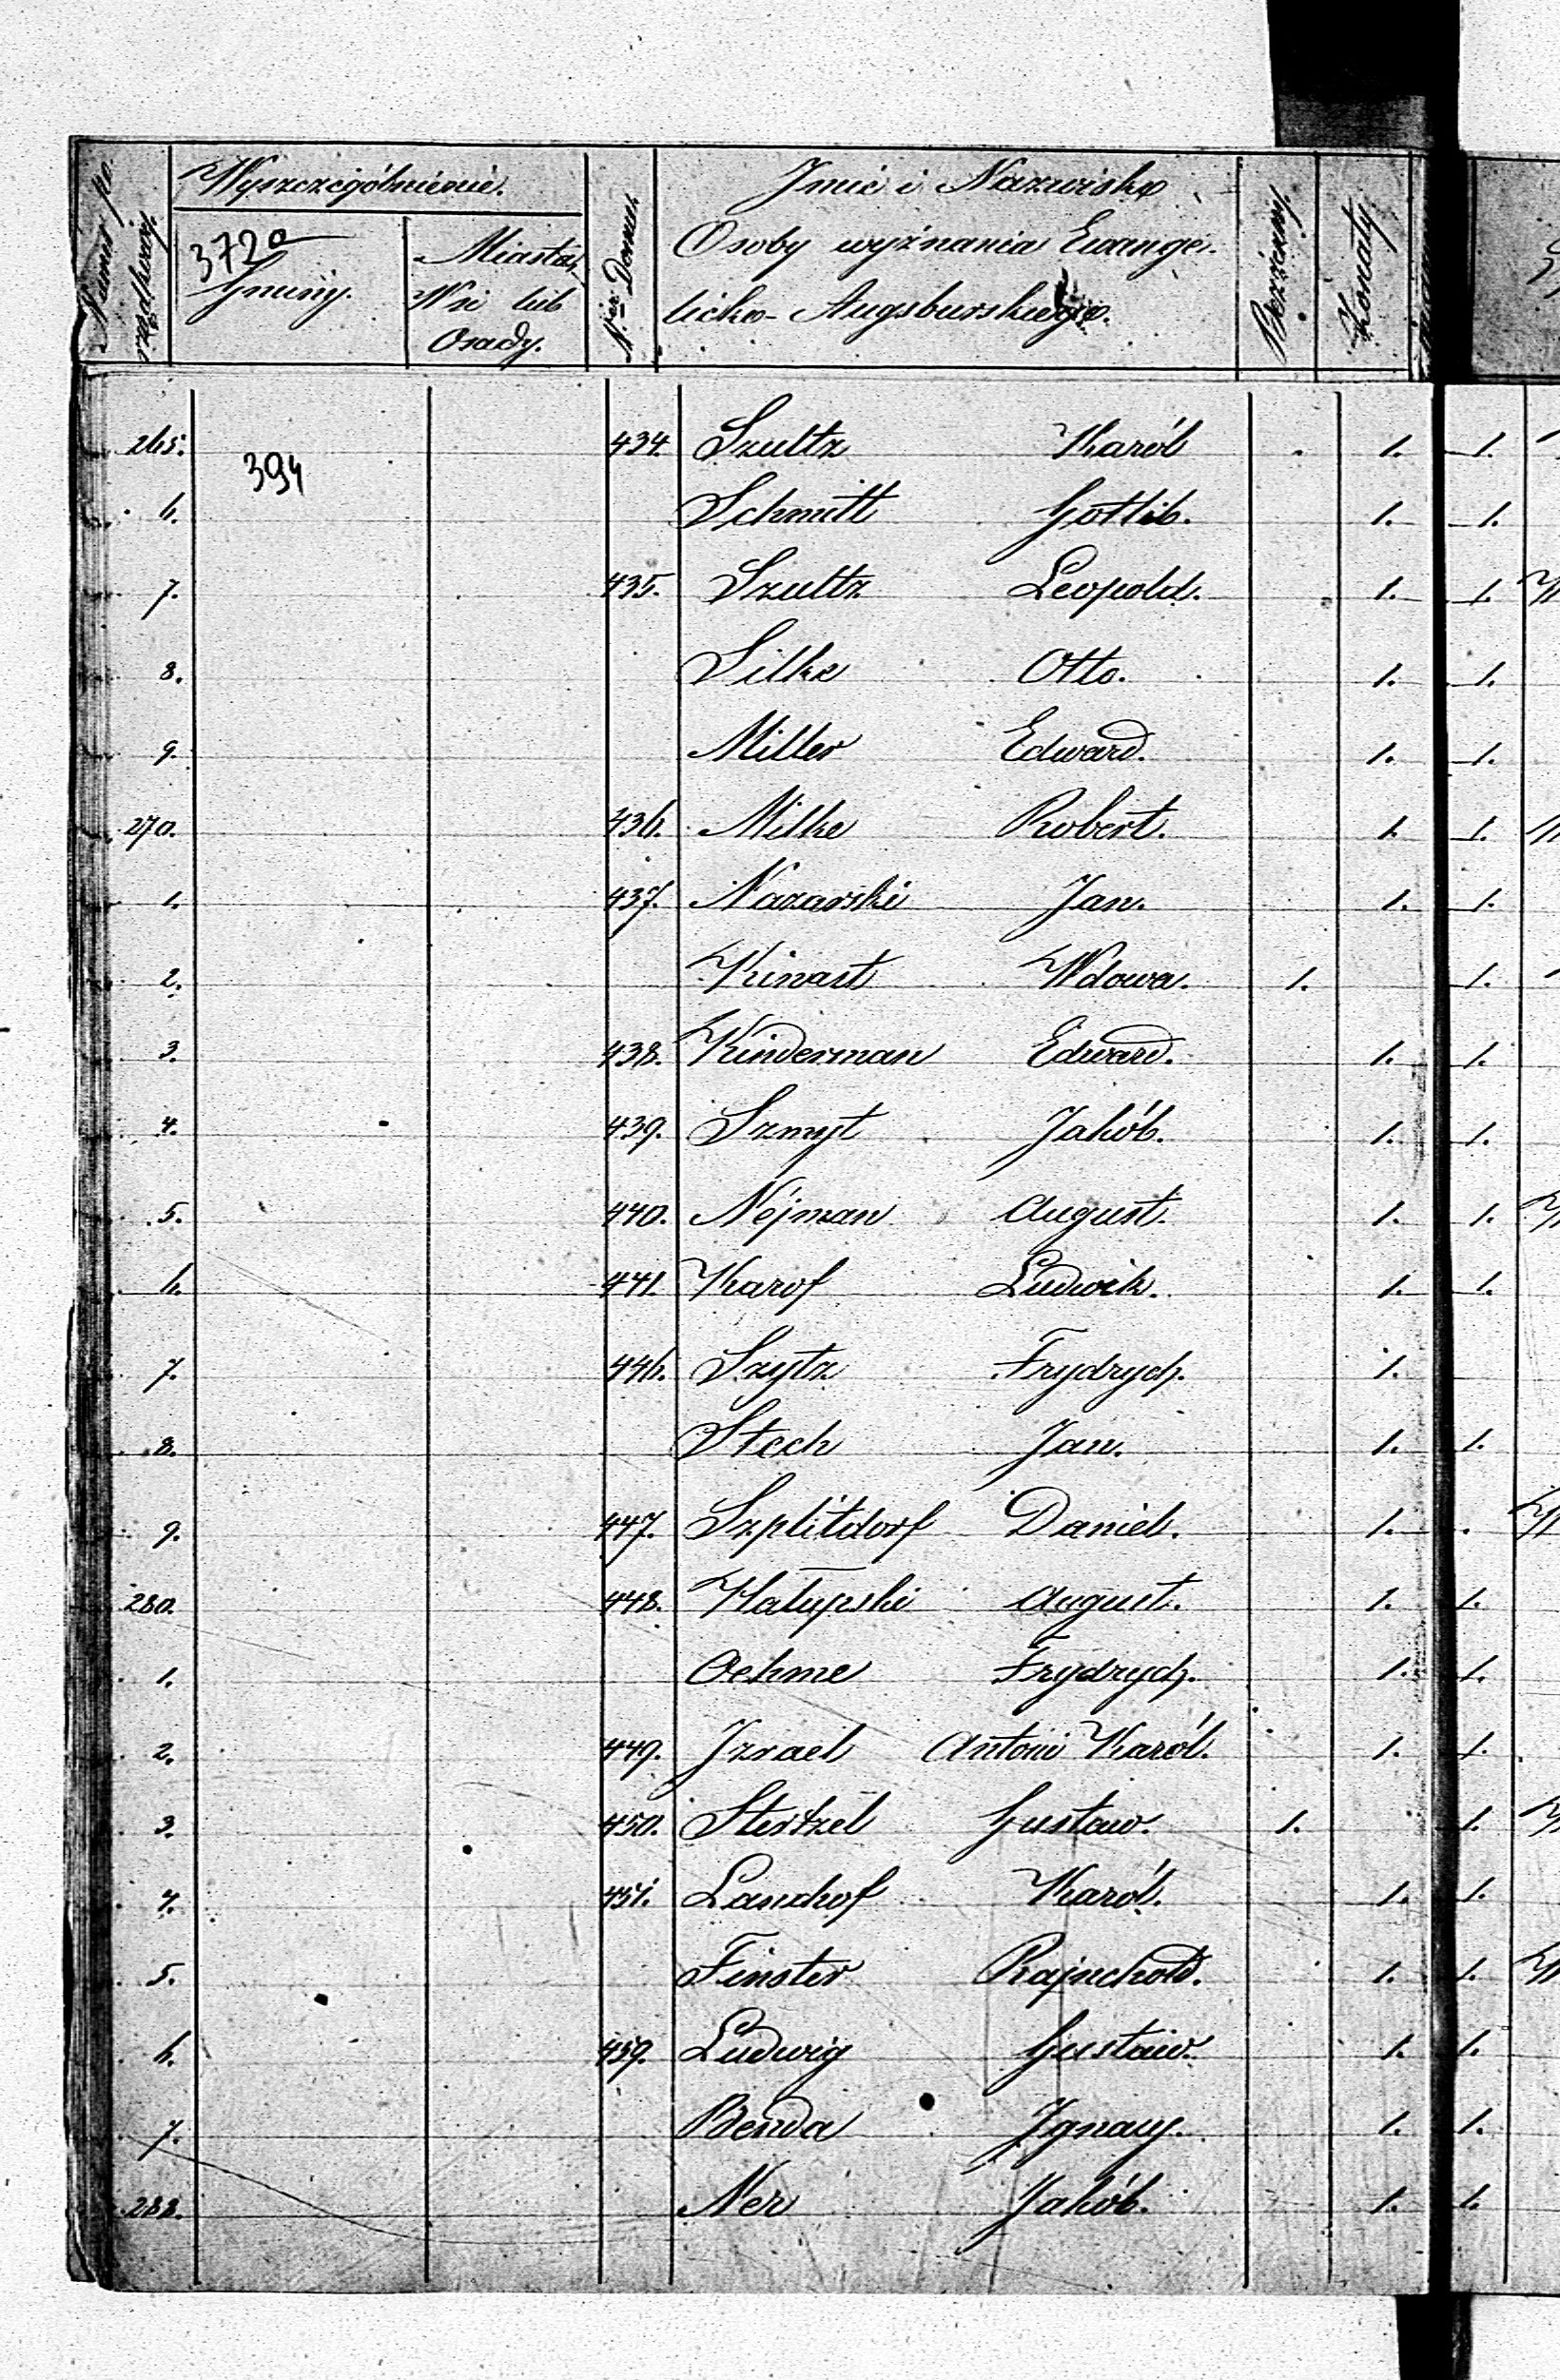 Numer po-
rządkowy.
Wyszczególnienie.
372a
Gminy.
Miasta,
Wsi lub
Osady.
N.er Domu.
Imie i Nazwisko
Osoby wyznania Ewange-
licko-Augsburskiego.
Bezżenny.
Żonaty
265. 434. Szultz Karól . 1. 1.
394
6. Schmitt Gottlib. 1. 1.
7. 435. Szultz Leopold. 1. 1.
8. Silke Otto. 1. 1.
9. Miller Edward. 1. 1.
270. 436. Milke Robert. 1. 1.
1. 437. Nazarski Jan. 1. 1.
2. Kinast Wdowa. 1. 1.
3. 438. Kinderman Edward. 1. 1.
4. 439. Szmyt Jakób. 1. 1.
5. 440. Nejman August. 1. 1.
6. 441. Karof Ludwik. 1. 1.
7. 446. Szytz Frydrych. 1.
8. Stech Jan. 1. 1.
9. 447. Szplitdorf Daniel. 1. .
280. 448. Kałupski August. 1. 1.
1. Oehme Frydrych. 1. 1.
2. 449. Izrael Antoni Karól. 1. 1.
3. 450. Stertzel Gustaw. 1. 1.
4. 451. Landhof Karól. 1. 1.
5. Finster Rajnchold. 1. 1.
6. 459. Ludwig Gustaw. 1. 1.
7. Benda Ignacy. 1. 1.
288. Ner Jakób. 1. 1.